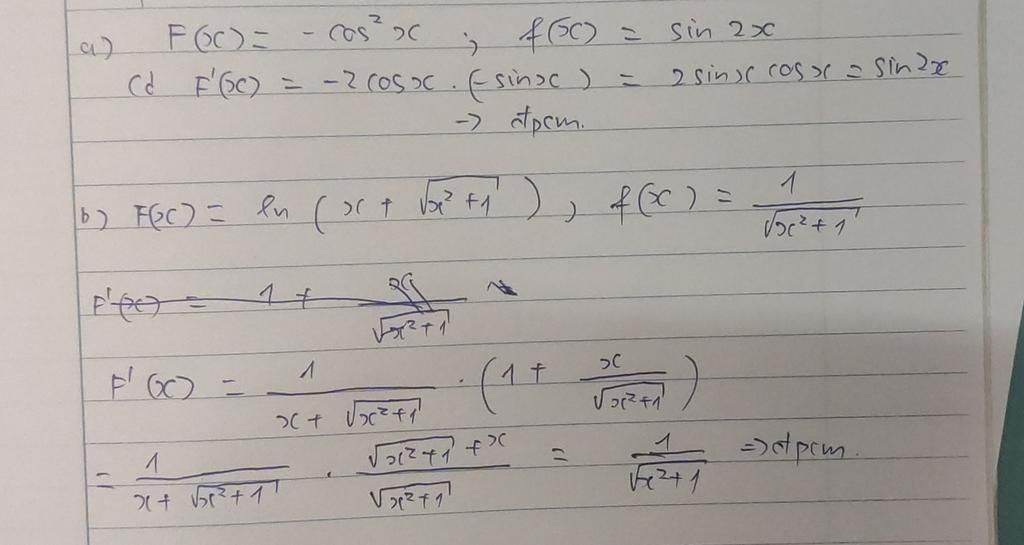 a) F(x) = - cos²x ; f(x) = sin 2x
Có F'(x) = -2 cosx . (-sinx) = 2 sinx cosx = sin2x
→ đpcm.
b) F(x) = ln (x + √(x²+1)) ; f(x) = 1/√(x²+1)
F'(x) = 1 + x/√(x²+1)
F'(x) = 1/(x + √(x²+1)) . (1 + x/√(x²+1))
= 1/(x + √(x²+1)) . (√(x²+1) + x)/√(x²+1) = 1/√(x²+1) => đpcm.